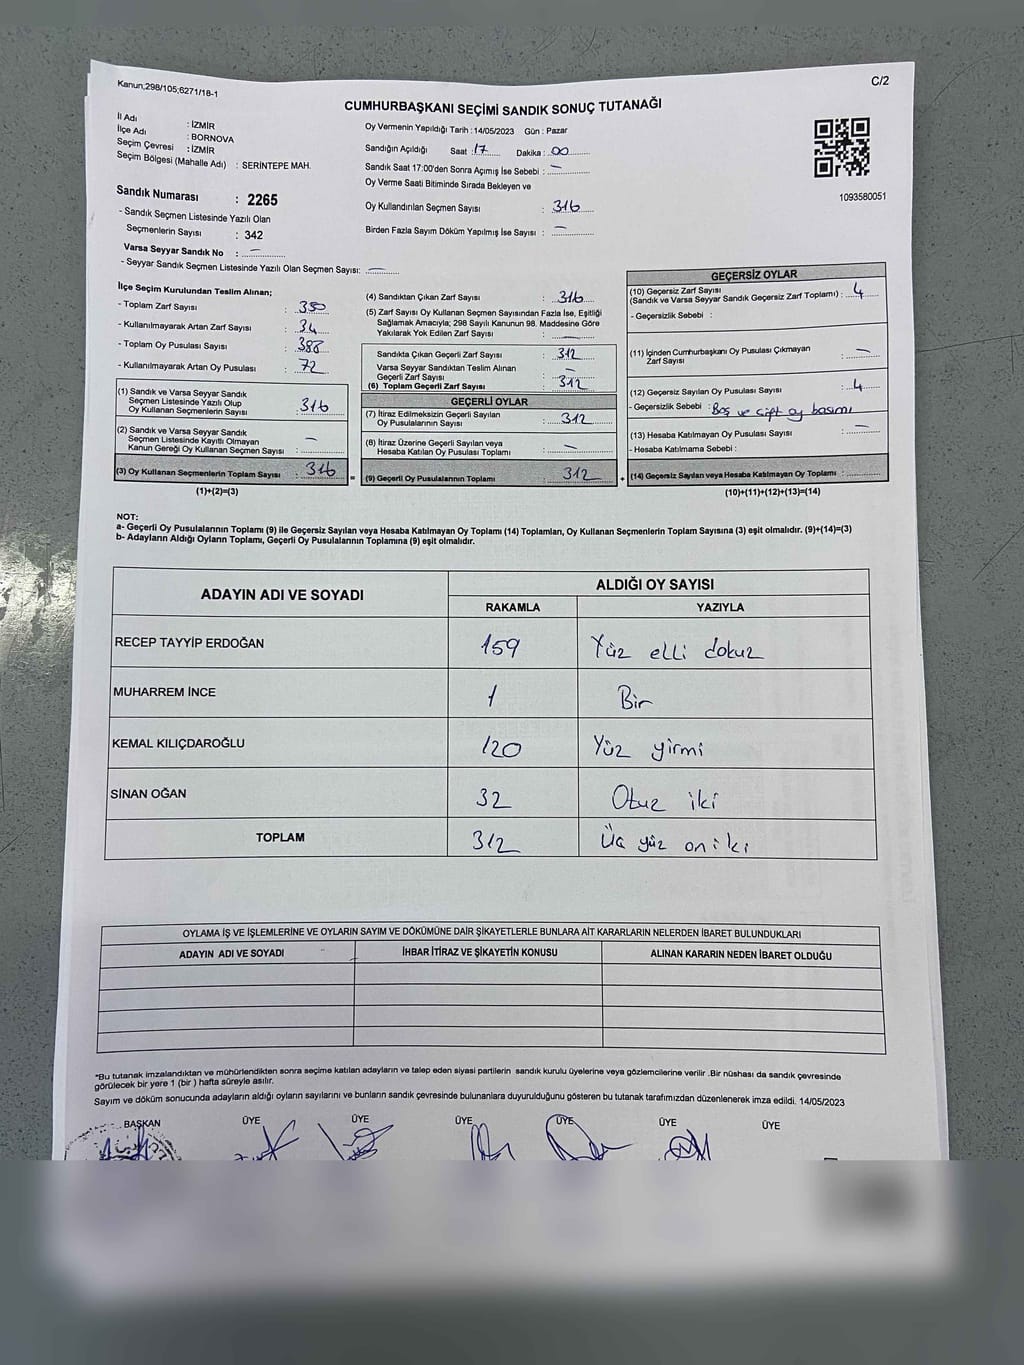 Kanun,298/105;6271/18-1
C/2
CUMHURBAŞKANI SEÇİMİ SANDIK SONUÇ TUTANAĞI
İl Adı : İZMİR
İlçe Adı : BORNOVA
Seçim Çevresi : İZMİR
Seçim Bölgesi (Mahalle Adı) : SERİNTEPE MAH.
Sandık Numarası : 2265
- Sandık Seçmen Listesinde Yazılı Olan
Seçmenlerin Sayısı : 342
Varsa Seyyar Sandık No : —
- Seyyar Sandık Seçmen Listesinde Yazılı Olan Seçmen Sayısı: —
Oy Vermenin Yapıldığı Tarih : 14/05/2023 Gün : Pazar
Sandığın Açıldığı Saat : 17 Dakika : 00
Sandık Saat 17:00'den Sonra Açımış İse Sebebi : —
Oy Verme Saati Bitiminde Sırada Bekleyen ve
Oy Kullandırılan Seçmen Sayısı : 316
Birden Fazla Sayım Döküm Yapılmış İse Sayısı : —
1093580051
İlçe Seçim Kurulundan Teslim Alınan;
- Toplam Zarf Sayısı : 350
- Kullanılmayarak Artan Zarf Sayısı : 34
- Toplam Oy Pusulası Sayısı : 388
- Kullanılmayarak Artan Oy Pusulası : 72
(1) Sandık ve Varsa Seyyar Sandık
Seçmen Listesinde Yazılı Olup
Oy Kullanan Seçmenlerin Sayısı : 316
(2) Sandık ve Varsa Seyyar Sandık
Seçmen Listesinde Kayıtlı Olmayan
Kanun Gereği Oy Kullanan Seçmen Sayısı : —
(3) Oy Kullanan Seçmenlerin Toplam Sayısı : 316
(1)+(2)=(3)
=
(4) Sandıktan Çıkan Zarf Sayısı : 316
(5) Zarf Sayısı Oy Kullanan Seçmen Sayısından Fazla İse, Eşitliği
Sağlamak Amacıyla; 298 Sayılı Kanunun 98. Maddesine Göre
Yakılarak Yok Edilen Zarf Sayısı : —
Sandıkta Çıkan Geçerli Zarf Sayısı : 312
Varsa Seyyar Sandıktan Teslim Alınan
Geçerli Zarf Sayısı : —
(6) Toplam Geçerli Zarf Sayısı : 312
GEÇERLİ OYLAR
(7) İtiraz Edilmeksizin Geçerli Sayılan
Oy Pusulalarının Sayısı : 312
(8) İtiraz Üzerine Geçerli Sayılan veya
Hesaba Katılan Oy Pusulası Toplamı : —
(9) Geçerli Oy Pusulalarının Toplamı : 312
+
GEÇERSİZ OYLAR
(10) Geçersiz Zarf Sayısı
(Sandık ve Varsa Seyyar Sandık Geçersiz Zarf Toplamı) : 4
- Geçersizlik Sebebi :
(11) İçinden Cumhurbaşkanı Oy Pusulası Çıkmayan
Zarf Sayısı : —
(12) Geçersiz Sayılan Oy Pusulası Sayısı : 4
- Geçersizlik Sebebi : Boş ve çift oy basımı
(13) Hesaba Katılmayan Oy Pusulası Sayısı : —
- Hesaba Katılmama Sebebi :
(14) Geçersiz Sayılan veya Hesaba Katılmayan Oy Toplamı :
(10)+(11)+(12)+(13)=(14)
NOT:
a- Geçerli Oy Pusulalarının Toplamı (9) ile Geçersiz Sayılan veya Hesaba Katılmayan Oy Toplamı (14) Toplamları, Oy Kullanan Seçmenlerin Toplam Sayısına (3) eşit olmalıdır. (9)+(14)=(3)
b- Adayların Aldığı Oyların Toplamı, Geçerli Oy Pusulalarının Toplamına (9) eşit olmalıdır.
ADAYIN ADI VE SOYADI
ALDIĞI OY SAYISI
RAKAMLA YAZIYLA
RECEP TAYYİP ERDOĞAN 159 Yüz elli dokuz
MUHARREM İNCE 1 Bir
KEMAL KILIÇDAROĞLU 120 Yüz yirmi
SİNAN OĞAN 32 Otuz iki
TOPLAM 312 Üç yüz on iki
OYLAMA İŞ VE İŞLEMLERİNE VE OYLARIN SAYIM VE DÖKÜMÜNE DAİR ŞİKAYETLERLE BUNLARA AİT KARARLARIN NELERDEN İBARET BULUNDUKLARI
ADAYIN ADI VE SOYADI İHBAR İTİRAZ VE ŞİKAYETİN KONUSU ALINAN KARARIN NEDEN İBARET OLDUĞU
*Bu tutanak imzalandıktan ve mühürlendikten sonra seçime katılan adayların ve talep eden siyasi partilerin sandık kurulu üyelerine veya gözlemcilerine verilir .Bir nüshası da sandık çevresinde
görülecek bir yere 1 (bir ) hafta süreyle asılır.
Sayım ve döküm sonucunda adayların aldığı oyların sayılarını ve bunların sandık çevresinde bulunanlara duyurulduğunu gösteren bu tutanak tarafımızdan düzenlenerek imza edildi. 14/05/2023
BAŞKAN ÜYE ÜYE ÜYE ÜYE ÜYE ÜYE